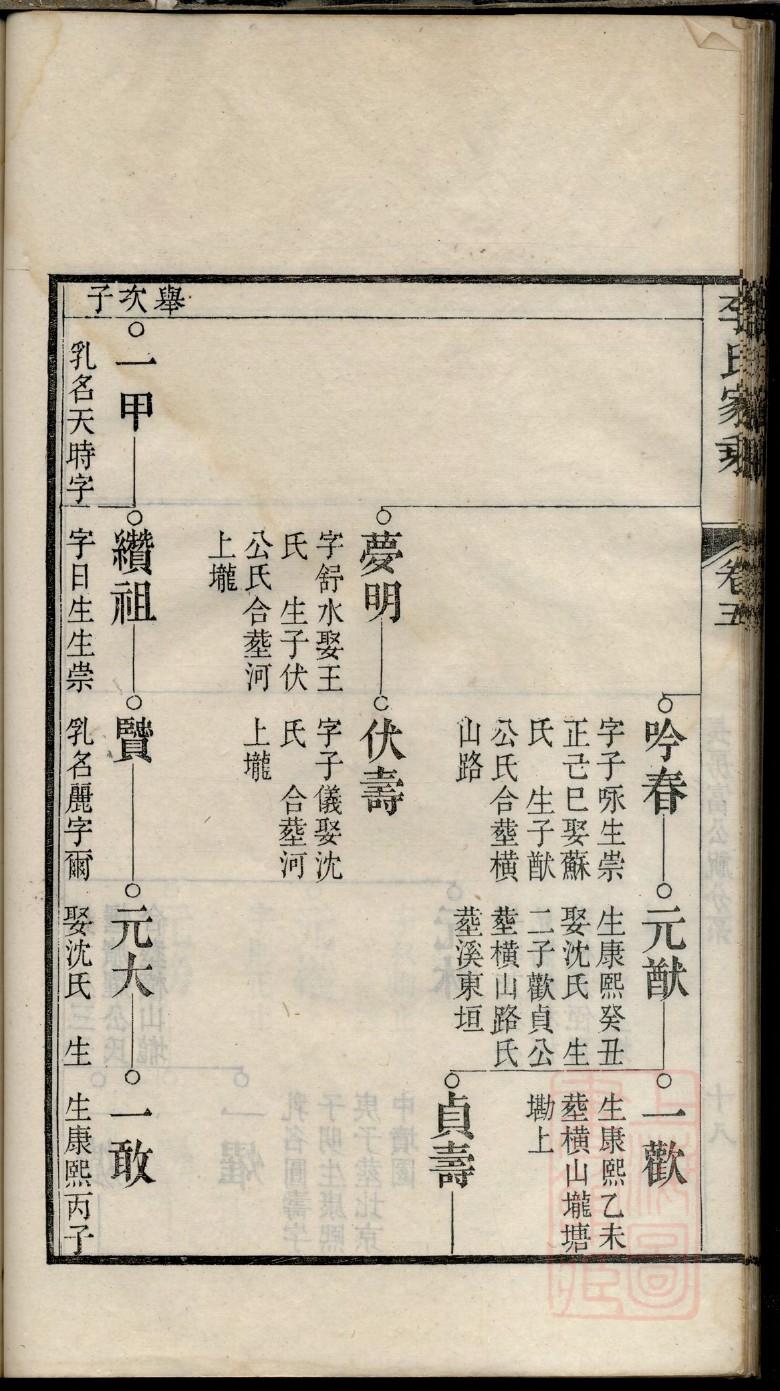 李氏家乘
卷五
吟春
字子咏生崇
正己巳娶蘇
氏　生子猷
公氏合塟橫
山路
元猷
生康熙癸丑
娶沈氏　生
二子歡貞公
塟橫山路氏
塟溪東垣
一歡
生康熙乙未
塟橫山壠塘
墈上
貞壽
夢明
字舒水娶王
氏　生子伏
公氏合塟河
上壠
伏壽
字子儀娶沈
氏　合塟河
上壠
舉次子
一甲
乳名天時字
纘祖
字日生生崇
賢
乳名麗字爾
元大
娶沈氏　生
一敢
生康熙丙子